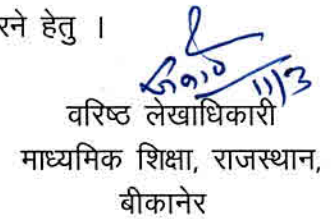 रने हेतु ।
11/3
वरिष्ठ लेखाधिकारी
माध्यमिक शिक्षा, राजस्थान,
बीकानेर